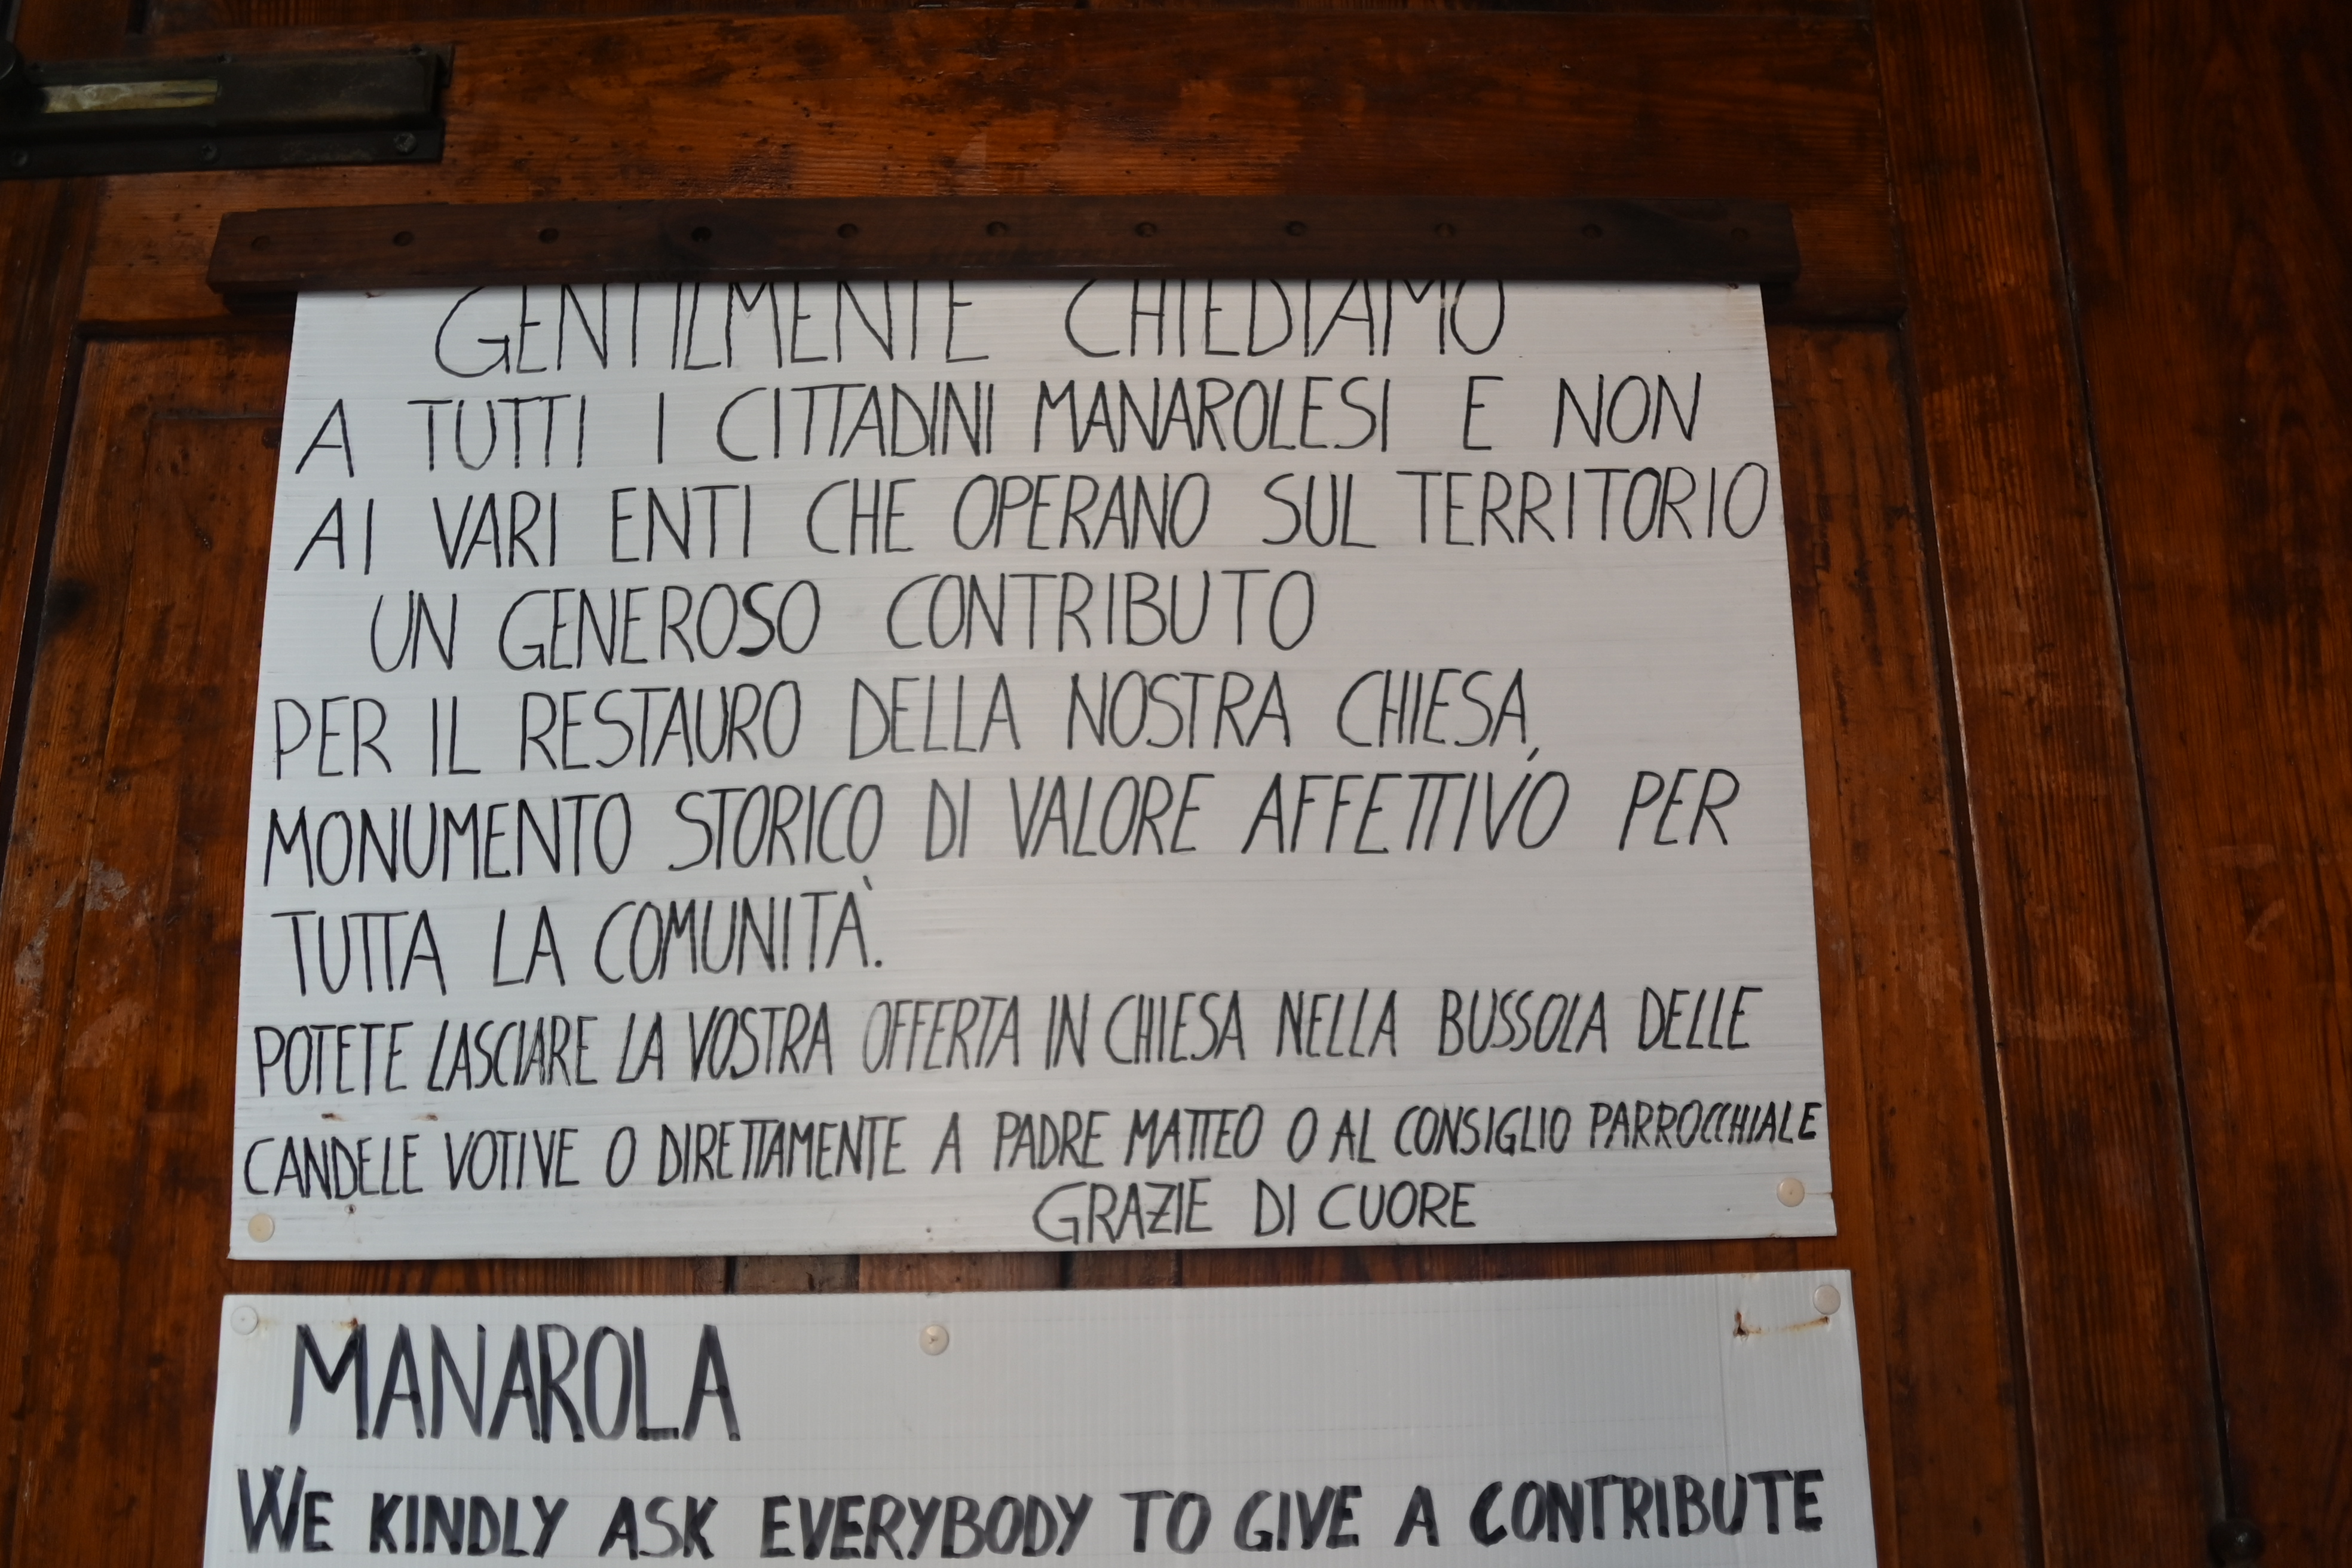 GENTILMENTE CHIEDIAMO
A TUTTI I CITTADINI MANAROLESI E NON
AI VARI ENTI CHE OPERANO SUL TERRITORIO
UN GENEROSO CONTRIBUTO
PER IL RESTAURO DELLA NOSTRA CHIESA,
MONUMENTO STORICO DI VALORE AFFETTIVO PER
TUTTA LA COMUNITÀ.
POTETE LASCIARE LA VOSTRA OFFERTA IN CHIESA NELLA BUSSOLA DELLE
CANDELE VOTIVE O DIRETTAMENTE A PADRE MATTEO O AL CONSIGLIO PARROCCHIALE
GRAZIE DI CUORE
MANAROLA
WE KINDLY ASK EVERYBODY TO GIVE A CONTRIBUTE